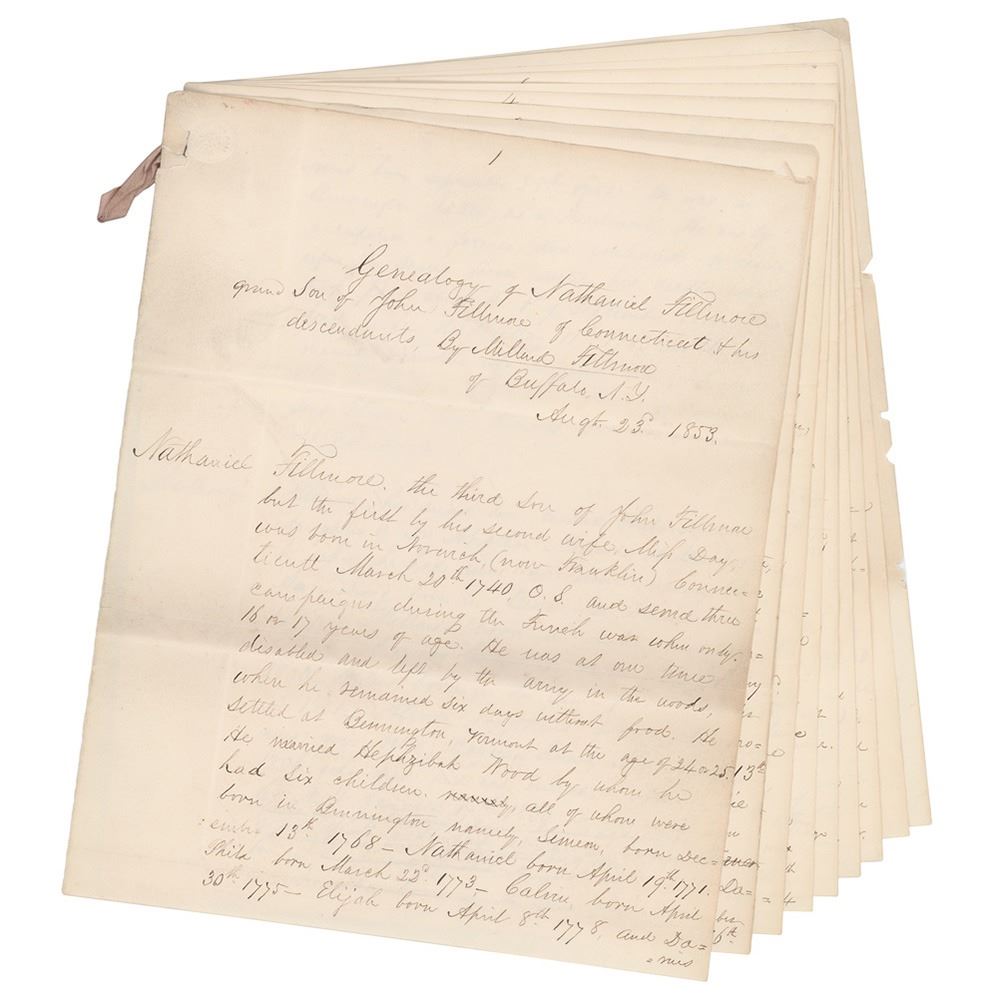 1
Genealogy of Nathaniel Fillmore
grand Son of John Fillmore of Connecticut & his
descendants, By Millard Fillmore
of Buffalo, N.Y.
Augt. 23d. 1853.
Nathaniel Fillmore. the third son of John Fillmore
but the first by his second wife, Miss Day,
was born in Norwich, (now Franklin) Connec=
ticutt March 20th 1740, O.S. and served three
campaigns during the French war when only
16 or 17 years of age. He was at one time
disabled and left by the army in the woods,
when he remained six days without food. He
settled at Bennington, Vermont at the age of 24 or 25.
He married Hephzibah Wood by whom he
had six children. all of whom were
born in Bennington, namely, Simeon, born Dec=
ember 13th 1768 – Nathaniel born April 19th 1771.
Philo born March 22d. 1773 – Calvin, born April
30th 1775 – Elijah born April 8th 1778, and Da=
=mis